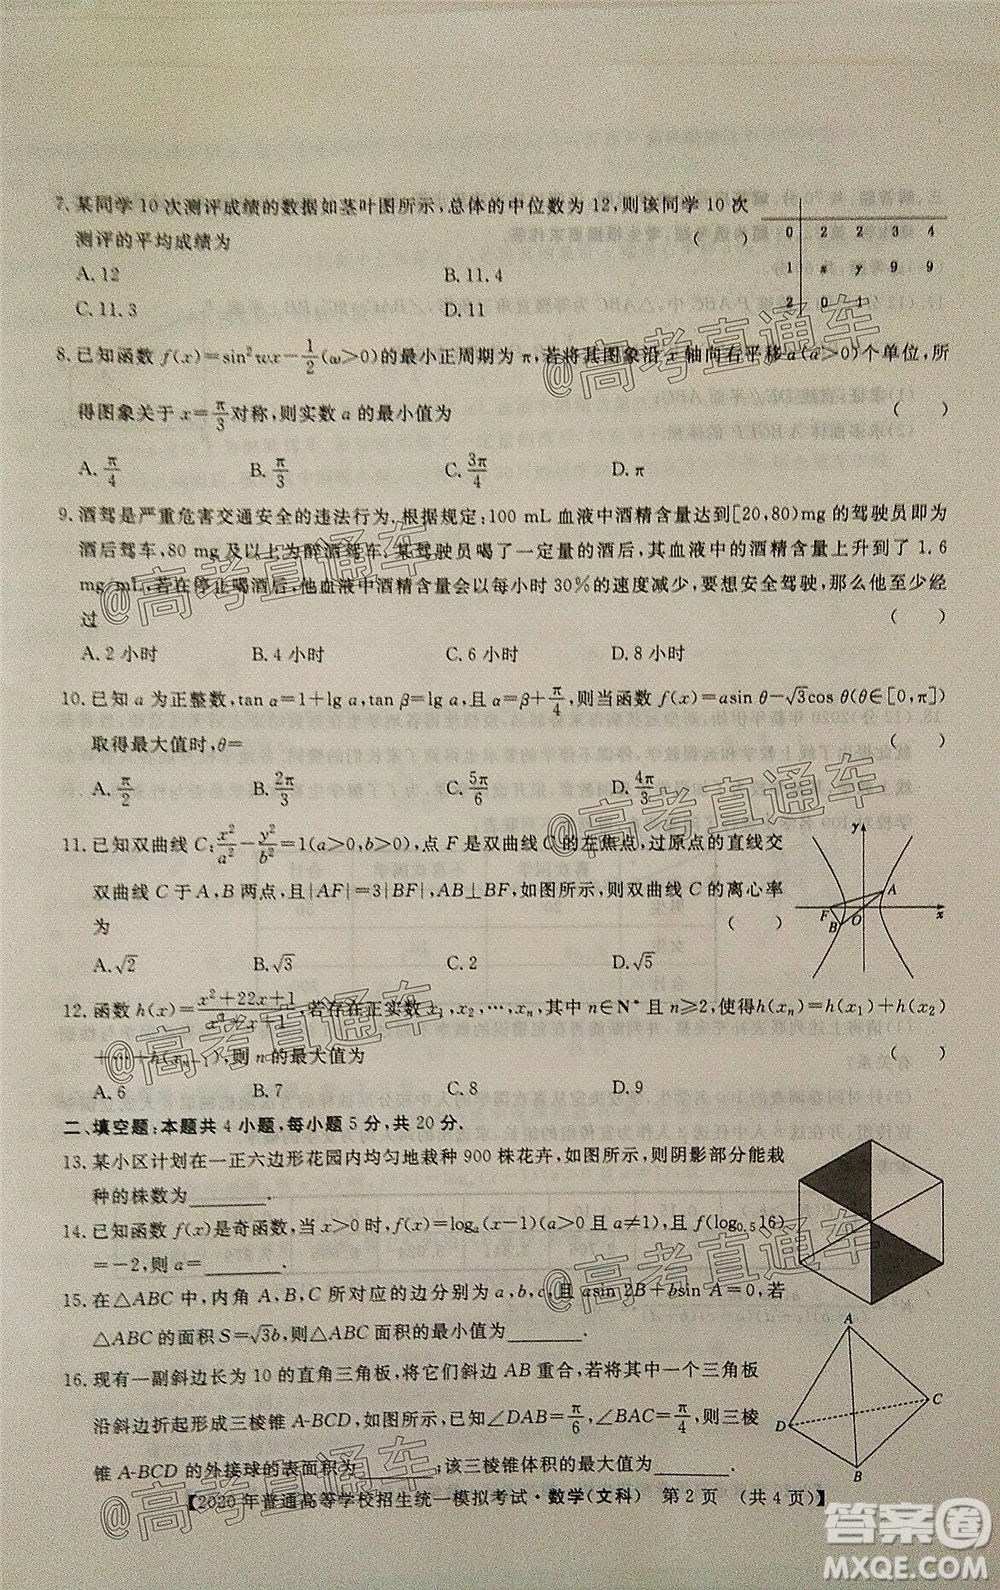 7. 某同学10次测评成绩的数据如茎叶图所示,总体的中位数为12,则该同学10次
测评的平均成绩为 ( )
0 2 2 3 4
1 x y 9 9
2 0 1
A. 12 B. 11.4
C. 11.3 D. 11
8. 已知函数 f(x)=sin²wx-1/2(ω>0)的最小正周期为π,若将其图象沿x轴向右平移a(a>0)个单位,所
得图象关于x=π/3对称,则实数a的最小值为 ( )
A. π/4 B. π/3 C. 3π/4 D. π
9. 酒驾是严重危害交通安全的违法行为,根据规定:100 mL血液中酒精含量达到[20,80)mg的驾驶员即为
酒后驾车,80 mg及以上为醉酒驾车.某驾驶员喝了一定量的酒后,其血液中的酒精含量上升到了1.6
mg/mL,若在停止喝酒后,他血液中酒精含量会以每小时30%的速度减少,要想安全驾驶,那么他至少经
过 ( )
A. 2小时 B. 4小时 C. 6小时 D. 8小时
10. 已知a为正整数,tan α=1+lg a,tan β=lg a,且α=β+π/4,则当函数f(x)=asin θ-√3cos θ(θ∈[0,π])
取得最大值时,θ= ( )
A. π/2 B. 2π/3 C. 5π/6 D. 4π/3
11. 已知双曲线C:x²/a²-y²/b²=1(a>0,b>0),点F是双曲线C的左焦点,过原点的直线交
双曲线C于A,B两点,且|AF|=3|BF|,AF⊥BF,如图所示,则双曲线C的离心率
为 ( )
y
A
F
B
O
x
A. √2 B. √3 C. 2 D. √5
12. 函数h(x)=(x²+22x+1)/(x²+x+1),若存在正实数x₁,x₂,…,xₙ,其中n∈N*且n≥2,使得h(xₙ)=h(x₁)+h(x₂)
+…+h(xₙ₋₁),则n的最大值为 ( )
A. 6 B. 7 C. 8 D. 9
二、填空题:本题共4小题,每小题5分,共20分.
13. 某小区计划在一正六边形花园内均匀地栽种900株花卉,如图所示,则阴影部分能栽
种的株数为________.
14. 已知函数f(x)是奇函数,当x>0时,f(x)=logₐ(x-1)(a>0且a≠1),且f(log₀.₅16)
=-2,则a=________.
15. 在△ABC中,内角A,B,C所对应的边分别为a,b,c,且asin 2B+bsin A=0,若
△ABC的面积S=√3b,则△ABC面积的最小值为________.
16. 现有一副斜边长为10的直角三角板,将它们斜边AB重合,若将其中一个三角板
沿斜边折起形成三棱锥A-BCD,如图所示,已知∠DAB=π/6,∠BAC=π/4,则三棱
锥A-BCD的外接球的表面积为________;该三棱锥体积的最大值为________.
A
C
D
B
【2020年普通高等学校招生统一模拟考试·数学(文科) 第2页 (共4页)】
@高考直通车
@高考直通车
@高考直通车
@高考直通车
@高考直通车
@高考直通车
答案圈
MXQE.COM